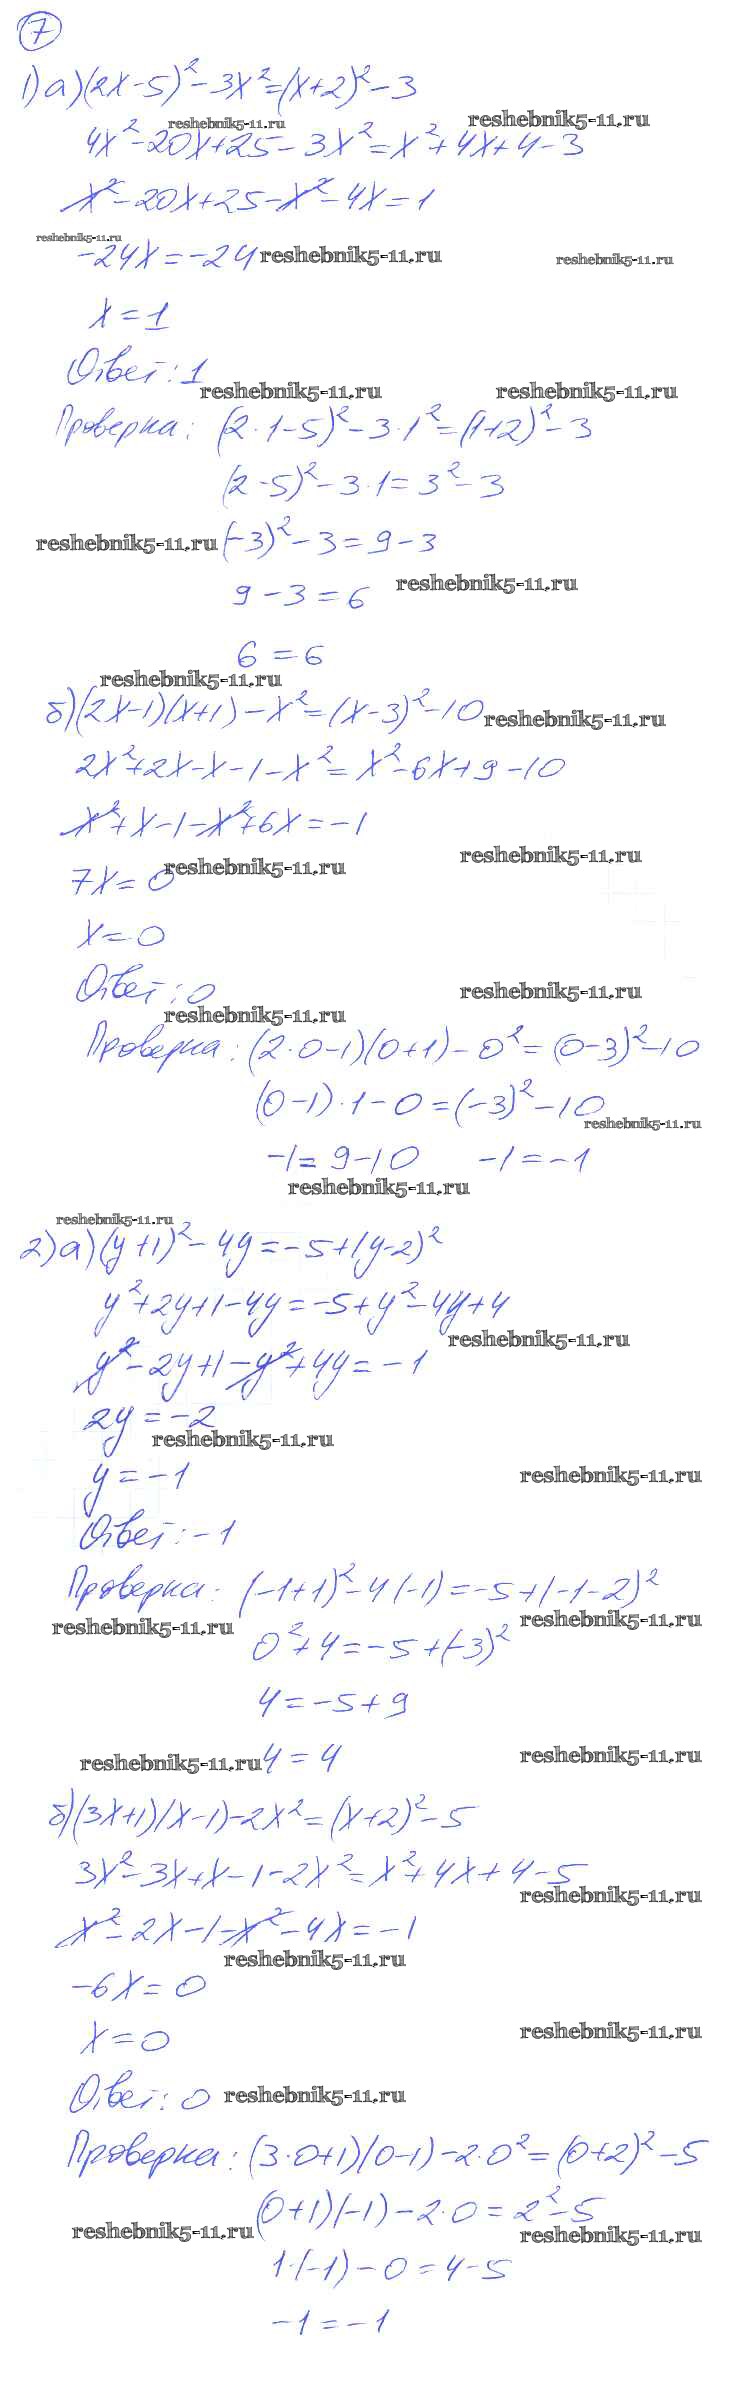 7
1) а) (2x-5)²-3x²=(x+2)²-3
reshebnik5-11.ru reshebnik5-11.ru
4x²-20x+25-3x²=x²+4x+4-3
x²-20x+25-x²-4x=1
reshebnik5-11.ru
-24x=-24 reshebnik5-11.ru reshebnik5-11.ru
x=1
Ответ: 1
reshebnik5-11.ru reshebnik5-11.ru
Проверка: (2·1-5)²-3·1²=(1+2)²-3
(2-5)²-3·1=3²-3
reshebnik5-11.ru (-3)²-3=9-3
reshebnik5-11.ru
9-3=6
6=6
reshebnik5-11.ru
б) (2x-1)(x+1)-x²=(x-3)²-10 reshebnik5-11.ru
2x²+2x-x-1-x²=x²-6x+9-10
x²+x-1-x²+6x=-1
reshebnik5-11.ru
7x=0 reshebnik5-11.ru
x=0
Ответ: 0 reshebnik5-11.ru
reshebnik5-11.ru
Проверка: (2·0-1)(0+1)-0²=(0-3)²-10
(0-1)·1-0=(-3)²-10
reshebnik5-11.ru
-1=9-10 -1=-1
reshebnik5-11.ru
reshebnik5-11.ru
2) а) (y+1)²-4y=-5+(y-2)²
y²+2y+1-4y=-5+y²-4y+4
reshebnik5-11.ru
y²-2y+1-y²+4y=-1
2y=-2
reshebnik5-11.ru
y=-1 reshebnik5-11.ru
Ответ: -1
Проверка: (-1+1)²-4(-1)=-5+(-1-2)²
reshebnik5-11.ru reshebnik5-11.ru
0²+4=-5+(-3)²
4=-5+9
reshebnik5-11.ru 4=4 reshebnik5-11.ru
б) (3x+1)(x-1)-2x²=(x+2)²-5
3x²-3x+x-1-2x²=x²+4x+4-5
reshebnik5-11.ru
x²-2x-1-x²-4x=-1
reshebnik5-11.ru
-6x=0
x=0 reshebnik5-11.ru
Ответ: 0 reshebnik5-11.ru
Проверка: (3·0+1)(0-1)-2·0²=(0+2)²-5
(0+1)(-1)-2·0=2²-5
reshebnik5-11.ru reshebnik5-11.ru
1·(-1)-0=4-5
-1=-1